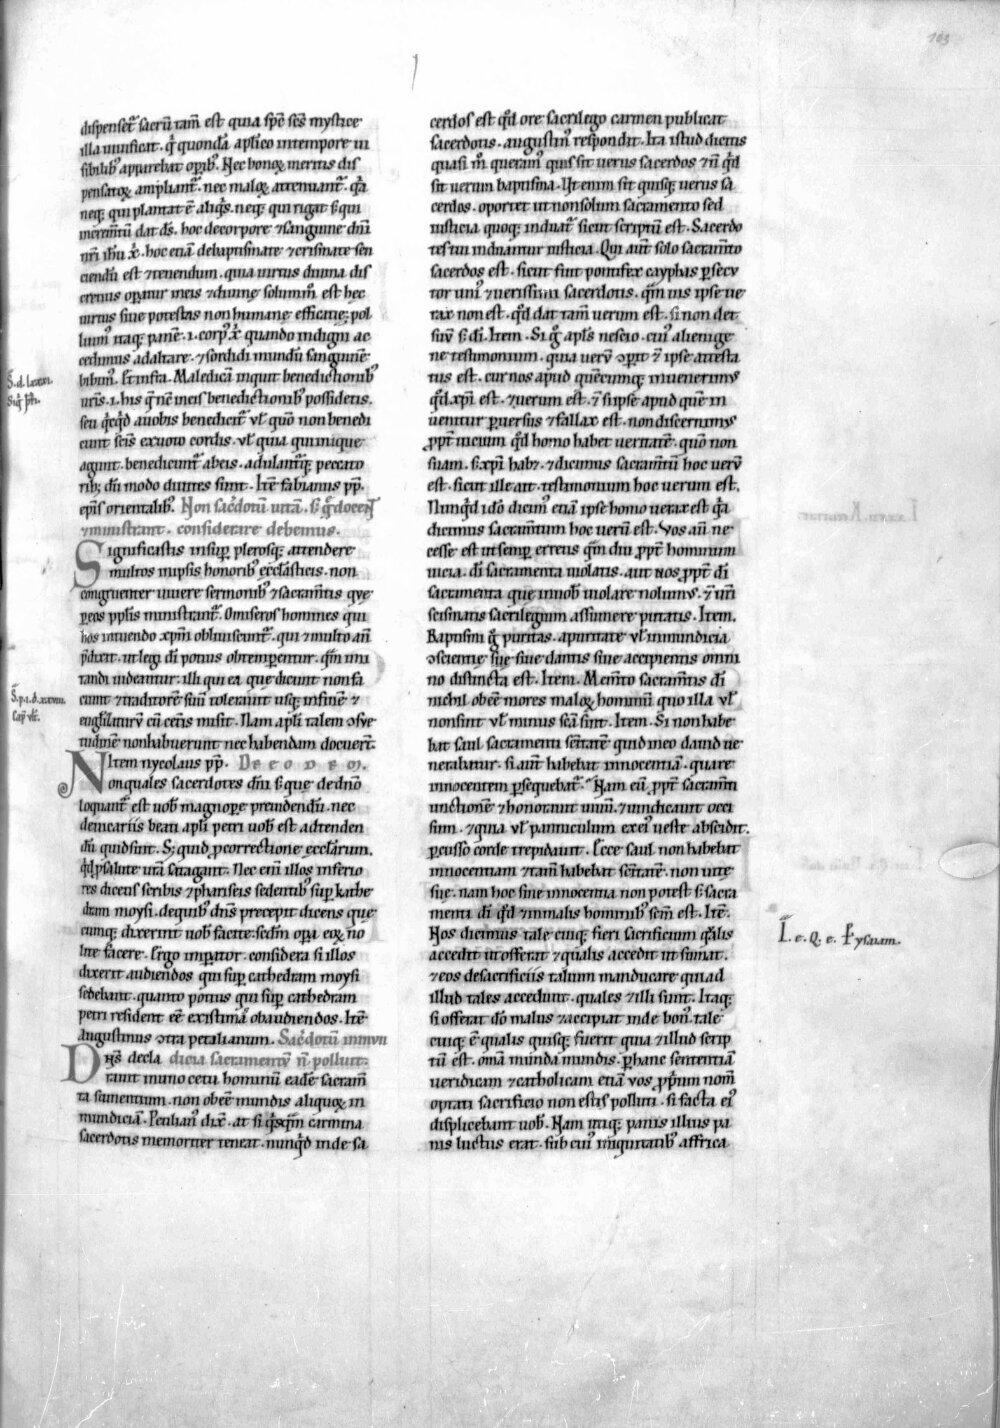 103
dispensetʳ sacrū tam̄ est quia sp̄c sc̄s mystice
illa uiuificat. qͥ quondā apl̄ico in tempore ui
sibilibꝰ apparebat op̄ibꝰ. Nec bonoꝝ meritis dis
pensatoꝝ ampliantʳ. nec maloꝝ attenuantʳ. qͣa
neq; qui plantat ē aliqͥs. neq; qui rigat sꝫ qui
increm̄tū dat ds̄. hoc de corpore ⁊ sanguine dn̄i
nr̄i ih̄u xp̄i. hoc etiā de baptismate ⁊ crismate sen
ciendū est ⁊ tenendum. quia uirtus diuina dis
cretius op̄atur in eis ⁊ diuine solumm̄ est hec
uirtus siue potestas non humane efficatie; pol
luim' itaq; panē .i. corpꝰ xp̄i quando indigni ac
cedimus ad altare. ⁊ sordidi mundū sanguinē
bibim'. Et infra. Maledicā inquit benedictionibꝰ
ur̄is .i. his qͥ nc̄ in eis benedictionibꝰ possidetis.
seu qͥcqͥd a uobis benedicitʳ vl̄ quō non benedi
cunt sc̄is ex uoto cordis. vl̄ quia qui inique
agunt. benedicuntʳ ab eis. adulantʳq; peccato
ribꝫ dū modo diuites sint. Itē fabianus pp̄.
ep̄is orientalibꝰ. Non sac̄dotū uitā. sꝫ qͥd docent
⁊ ministrant. considerare debemus.
Significastis insup̱ plerosq; attendere
multos in ip̄sis honoribꝰ ecclāsticis. non
congruenter uiuere sermonibꝰ ⁊ sacram̄tis que
p̱ eos pp̄lis ministrantʳ. O miseros homines qui
hos intuendo xp̄m obliuiscuntʳ. qui ⁊ multo an̄
p̄dixit. ut legi dī potius obtemp̱entur. qͣm imi
tandi uideantur. illi qui ea que dicunt non fa
ciunt ⁊ traditorē suū tolerauit usq; in finē ⁊
euāglizaturū cū cet̄is misit. Nam apl̄i talem ɔsue
tudinē non habuerunt nec habendam docuert̄.
Item nycolaus pp̄. De eodem.
Non quales sacerdotes dn̄i sꝫ que de dn̄o
loquantʳ est uob̄ magnop̱e preuidendū. nec
de uicariis beati apl̄i petri uob̄ est adtenden
dū quid sint. Sꝫ quid p̱ correctione ecclārum.
qͥd p̱ salute ur̄a satagant. Nec eni illos inferio
res dicens scribis ⁊ phariseis sedentibꝰ sup̱ kathe
dram moysi. de quibꝰ dn̄s precepit dicens que
cumq; dixerint uob̄ facite. sedm̄ op̱a eoꝝ no
lite facere. Ergo imp̱ator. considera si illos
dixerit audiendos qui sup̱ cathedram moysi
sedebant. quanto potius qui sup̱ cathedram
petri resident eē existimās obaudiendos. Itē
augustinus ɔtra petilianum. Sac̄dotū inmun
Dn̄s decla dicia sacramentū n̄ polluit.
rauit in uno cetu hominū eadē sacram̄
ta sumentium. non obeē mundis aliquoꝝ in
mundiciā. Petilian' dix̄. at si qͥsqͣm carmina
sacerdotis memoriter teneat. nunqͥd inde sa
cerdos est qͥd ore sacrilego carmen publicat
sacerdotis. augustin' respondit. Ita istud dictus
quasi m̄ queram' quis sit uerus sacerdos ⁊ n̄ qͥd
sit uerum baptisma. Ut enim sit quisq; uerus sa
cerdos. oportet ut non solum sacramento sed
iusticia quoq; induatʳ sicut scriptū est. Sacerdo
tes tui induantur iusticia. Qui aut̄ solo sacram̄to
sacerdos est. sicut fuit pontifex cayphas p̱secu
tor uni' ⁊ uerissimi sacerdotis. qͣm uis ipse ue
rax non est. qͥd dat tam̄ uerum est. si non det
suū sꝫ dī. Item. Si qͥ apl̄s nescio. cui' alienige
ne testimonium. quia uerū ɔp̱it ⁊ ipse attesta
tus est. cur nos apud quēcumq; inuenerimꝰ
qͥd xp̄i est. ⁊ uerum est. ⁊ si ipse apud quē in
uenitur p̱uersus ⁊ fallax est. non discernimꝰ
p̱pt̄ uicium qͥd homo habet ueritatē. quō non
suam. sꝫ xp̄i habꝫ. ⁊ dicimus sacram̄tū hoc uerū
est. sicut ille ait. testimonium hoc uerum est.
Nunqͥd idō dicim' etiā ipse homo uerax est qͣa
dicimus sacram̄tum hoc uerū est. Vos aū ne
cesse est ut semp̱ erretis qͣm diu p̱pt̄ hominum
uicia. dī sacramenta uiolatis. aut nos p̱pt̄ dī
sacramenta que in uob̄ uiolare nolumꝰ. ⁊ ur̄i
scismatis sacrilegium assumere putatis. Item.
Baptismi qͥ puritas. a puritate vl̄ inmundicia
ɔscientie sue siue dantis siue accipientis omni
no distincta est. Item. Mem̄to sacram̄tis dī
nichil obeē mores maloꝝ hominū quo illa vl̄
non sint vl̄ minus scā sint. Item. Si non habe
bat saul sacramenti sc̄itatē quid in eo dauid ue
nerabatur. si aūt habebat innocentiā. quare
innocentem p̱sequebatʳ. Nam eū p̱pt̄ sacram̄
unctionē ⁊ honorauit uiuū. ⁊ uindicauit occi
sum. ⁊ quia vl̄ panniculum ex ei' ueste abscidit.
p̱cusso corde trepidauit. Ecce saul non habebat
innocentiam ⁊ tam̄ habebat sc̄itatē. non uite
sue. nam hoc sine innocentia non potest sꝫ sacra
menti dī qͥd ⁊ in malis hominibꝰ sc̄m est. Itē.
Nos dicimus tale cuiq; fieri sacrificium qͣlis
accedit ut offerat ⁊ qualis accedit ut sumat.
⁊ eos de sacrificiis talium manducare qui ad
illud tales accedunt. quales ⁊ illi sunt. Itaq;
si offerat dō malus ⁊ accipiat inde bon'. tale
cuiq; ē qualis quisq; fuerit quia ⁊ illud scrip
tū est. om̄ia munda mundis. p̱ hanc sententiā
ueridicam ⁊ catholicam etiā vos p̱p̱ium nom̄
optati sacrificio non estis polluti. si facta ei'
displicebant uob̄. Nam utiq; panis illius pa
nis luctus erat. sub cui' iniquitatibꝰ affrica
S. d. lxxxi.
Sup̱ p̱h.
S. p. i. d. xxviii.
Cap̄ vlt̄.
I. e. Q. e. Ipsuam.